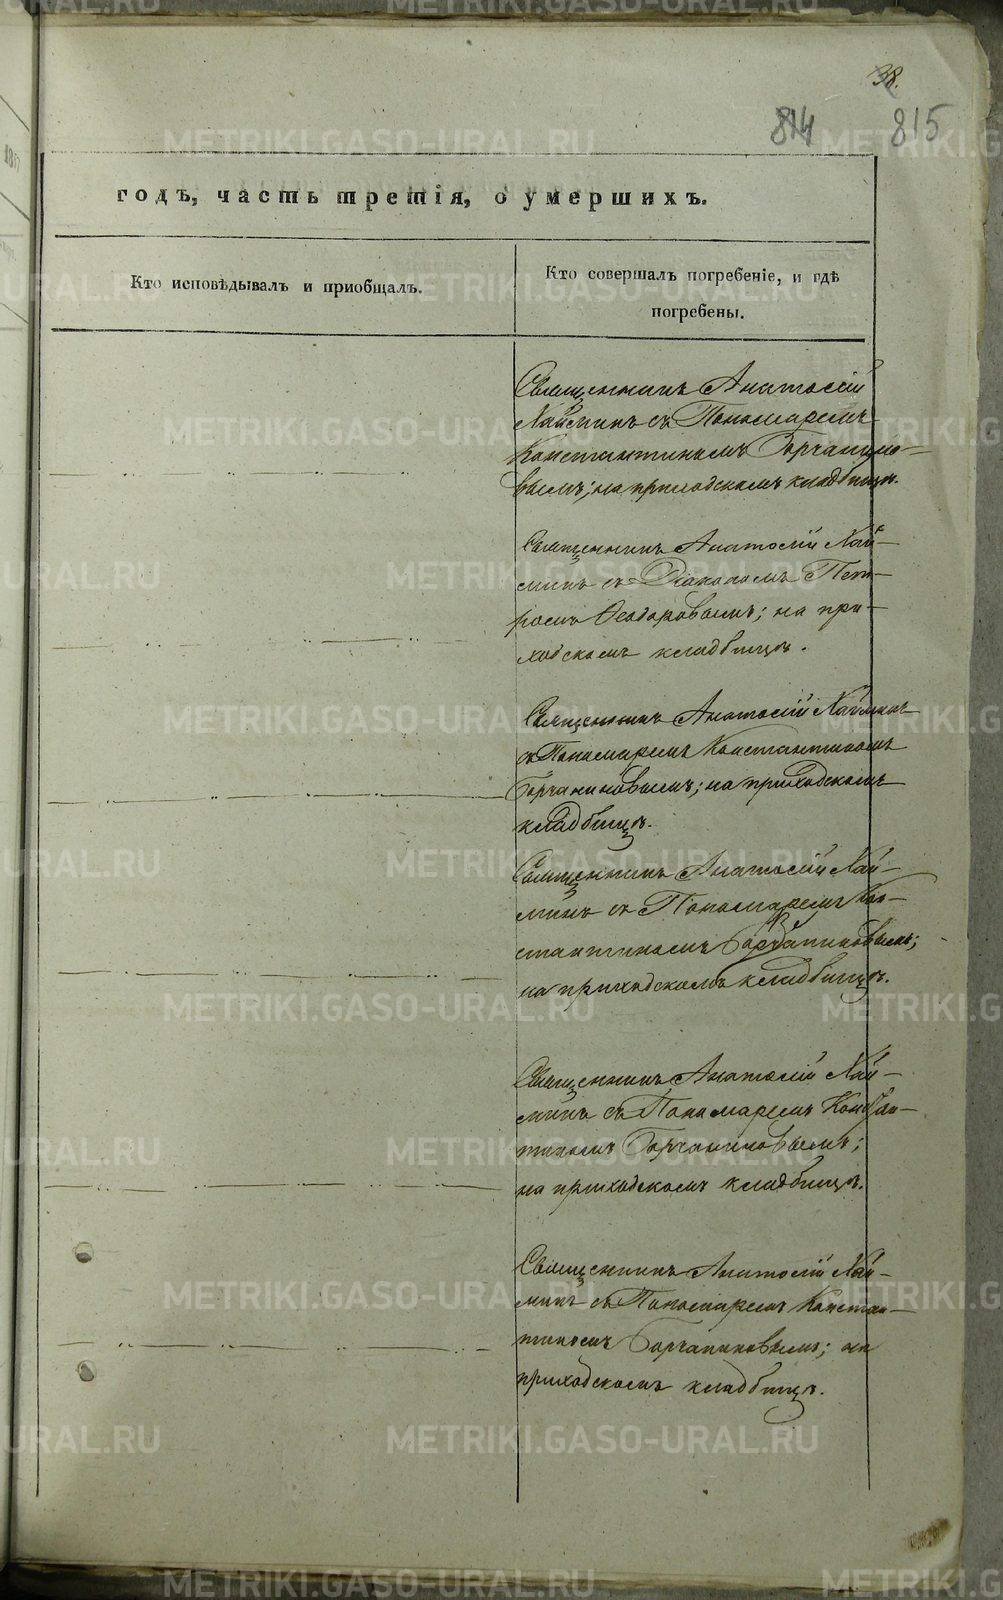 38.
814 815
годъ, часть третія, о умершихъ.
Кто исповѣдывалъ и приобщалъ.
Кто совершалъ погребеніе, и гдѣ
погребены.
Священникъ Анатолій
Наймминъ съ Пономаремъ
Константиномъ Горчанино-
вымъ; на приходскомъ кладбищѣ.
Священникъ Анатолій Най-
минъ съ Діакономъ Пет-
ромъ Ѳеодоровымъ; на при-
ходскомъ кладбищѣ.
Священникъ Анатолій Найминъ
съ Пономаремъ Константиномъ
Горчаниновымъ; на приходскомъ
кладбищѣ.
Священникъ Анатолій Най-
минъ съ Пономаремъ Кон-
стантиномъ Горчаниновымъ;
на приходскомъ кладбищѣ.
Священникъ Анатолій Най-
минъ съ Пономаремъ Констан-
тиномъ Горчаниновымъ;
на приходскомъ кладбищѣ.
Священникъ Анатолій Най-
минъ съ Пономаремъ Констан-
тиномъ Горчаниновымъ; на
приходскомъ кладбищѣ.
METRIKI.GASO-URAL.RU